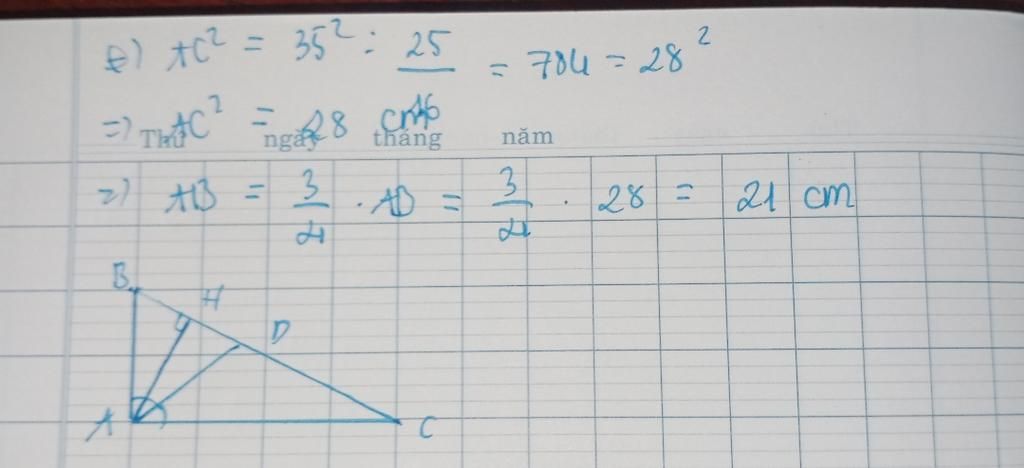 ⊕) AC² = 35² : 25/16 = 784 = 28²
=> AC² = 28 cm
Thứ ngày tháng năm
=> AB = 3/4 . AD = 3/4 . 28 = 21 cm
B
H
D
A
C